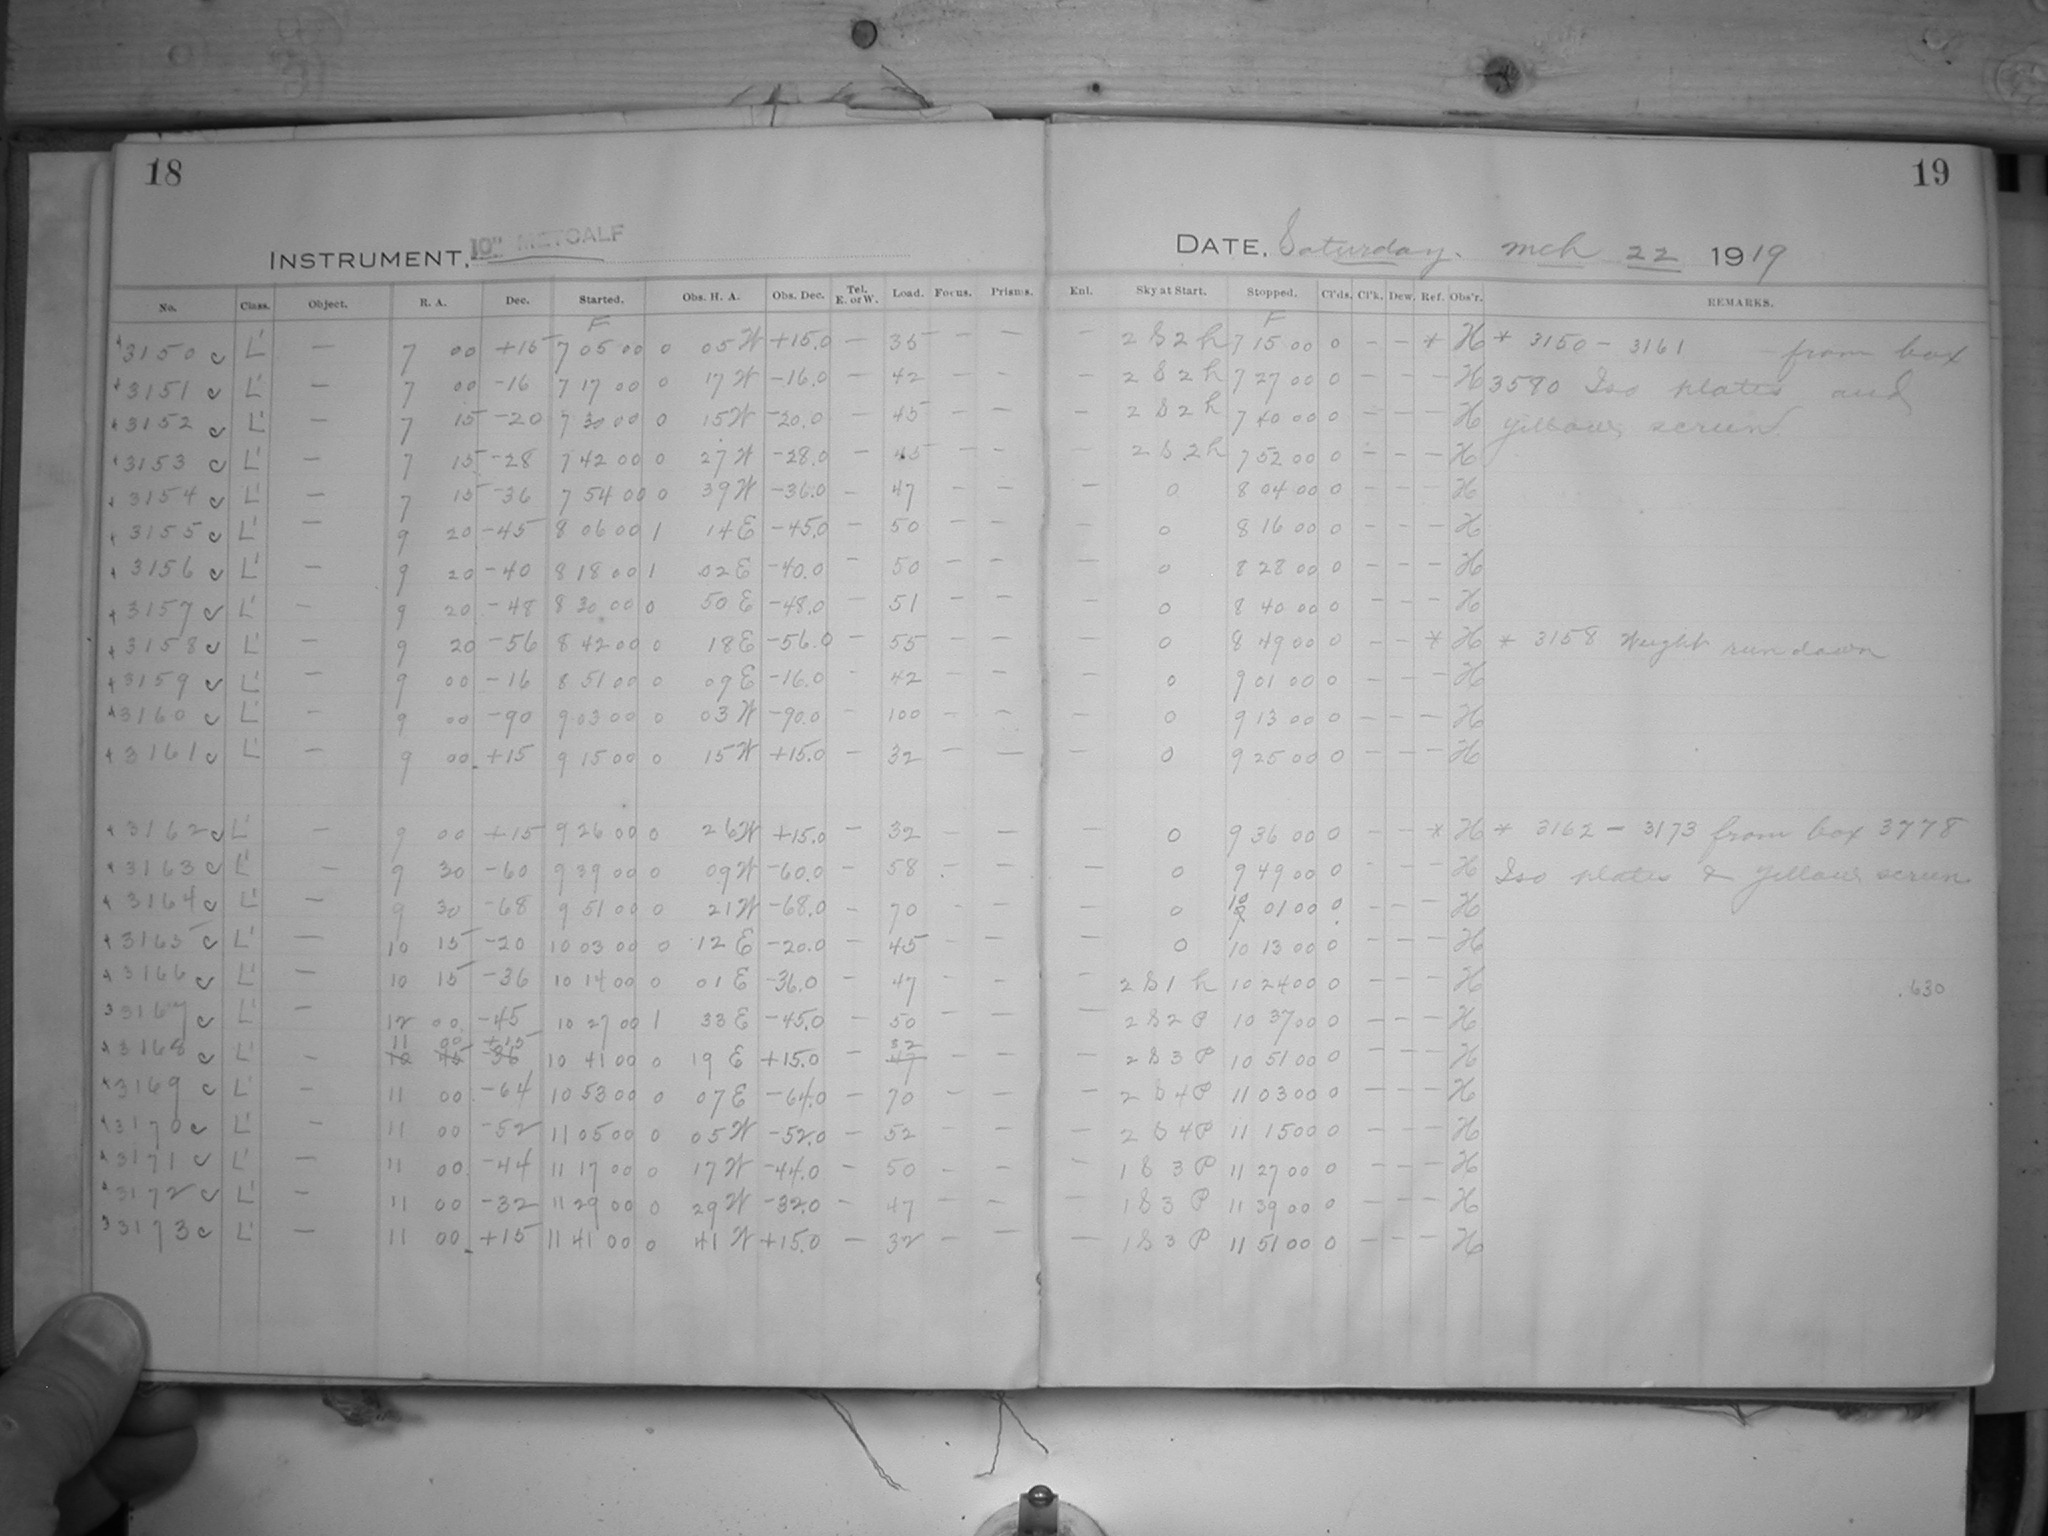 18
19
INSTRUMENT, 10" METCALF
DATE, Saturday. Mch 22 1919
No. Class. Object. R. A. Dec. Started. Obs. H. A. Obs. Dec. Tel. E. or W. Load. Focus. Prisms. Enl. Sky at Start. Stopped. Cl'ds. Cl'k. Dew. Ref. Obs'r. REMARKS.
F F
3150 L' — 7 00 +15 7 05 00 0 05 W +15.0 — 35 — — — 2 S 2 h 7 15 00 0 — — * H * 3150 - 3161 from box
3151 L' — 7 00 -16 7 17 00 0 17 W -16.0 — 42 — — — 2 S 2 h 7 27 00 0 — — — H 3580 Iso plates and
3152 L' — 7 15 -20 7 30 00 0 15 W -20.0 — 45 — — — 2 S 2 h 7 40 00 0 — — — H yellow screen
3153 L' — 7 15 -28 7 42 00 0 27 W -28.0 — 45 — — — 2 S 2 h 7 52 00 0 — — — H
3154 L' — 7 15 -36 7 54 00 0 39 W -36.0 — 47 — — — 0 8 04 00 0 — — — H
3155 L' — 9 20 -45 8 06 00 1 14 E -45.0 — 50 — — — 0 8 16 00 0 — — — H
3156 L' — 9 20 -40 8 18 00 1 02 E -40.0 — 50 — — — 0 8 28 00 0 — — — H
3157 L' — 9 20 -48 8 30 00 0 50 E -48.0 — 51 — — — 0 8 40 00 0 — — — H
3158 L' — 9 20 -56 8 42 00 0 18 E -56.0 — 55 — — — 0 8 49 00 0 — — * H * 3158 Weight run down
3159 L' — 9 00 -16 8 51 00 0 09 E -16.0 — 42 — — — 0 9 01 00 0 — — — H
3160 L' — 9 00 -90 9 03 00 0 03 W -90.0 — 100 — — — 0 9 13 00 0 — — — H
3161 L' — 9 00 +15 9 15 00 0 15 W +15.0 — 32 — — — 0 9 25 00 0 — — — H
3162 L' — 9 00 +15 9 26 00 0 26 W +15.0 — 32 — — — 0 9 36 00 0 — — * H * 3162 - 3173 from box 3778
3163 L' — 9 30 -60 9 39 00 0 09 W -60.0 — 58 — — — 0 9 49 00 0 — — — H Iso plates & yellow screen
3164 L' — 9 30 -68 9 51 00 0 21 W -68.0 — 70 — — — 0 10 01 00 0 — — — H
3165 L' — 10 15 -20 10 03 00 0 12 E -20.0 — 45 — — — 0 10 13 00 0 — — — H
3166 L' — 10 15 -36 10 14 00 0 01 E -36.0 — 47 — — — 2 S 1 h 10 24 00 0 — — — H .630
3167 L' — 12 00 -45 10 27 00 1 33 E -45.0 — 50 — — — 2 S 2 P 10 37 00 0 — — — H
3168 L' — 11 00 +15 10 41 00 0 19 E +15.0 — 32 — — — 2 S 3 P 10 51 00 0 — — — H
3169 L' — 11 00 -64 10 53 00 0 07 E -64.0 — 70 — — — 2 S 4 P 11 03 00 0 — — — H
3170 L' — 11 00 -52 11 05 00 0 05 W -52.0 — 52 — — — 2 S 4 P 11 15 00 0 — — — H
3171 L' — 11 00 -44 11 17 00 0 17 W -44.0 — 50 — — — 1 S 3 P 11 27 00 0 — — — H
3172 L' — 11 00 -32 11 29 00 0 29 W -32.0 — 47 — — — 1 S 3 P 11 39 00 0 — — — H
3173 L' — 11 00 +15 11 41 00 0 41 W +15.0 — 32 — — — 1 S 3 P 11 51 00 0 — — — H